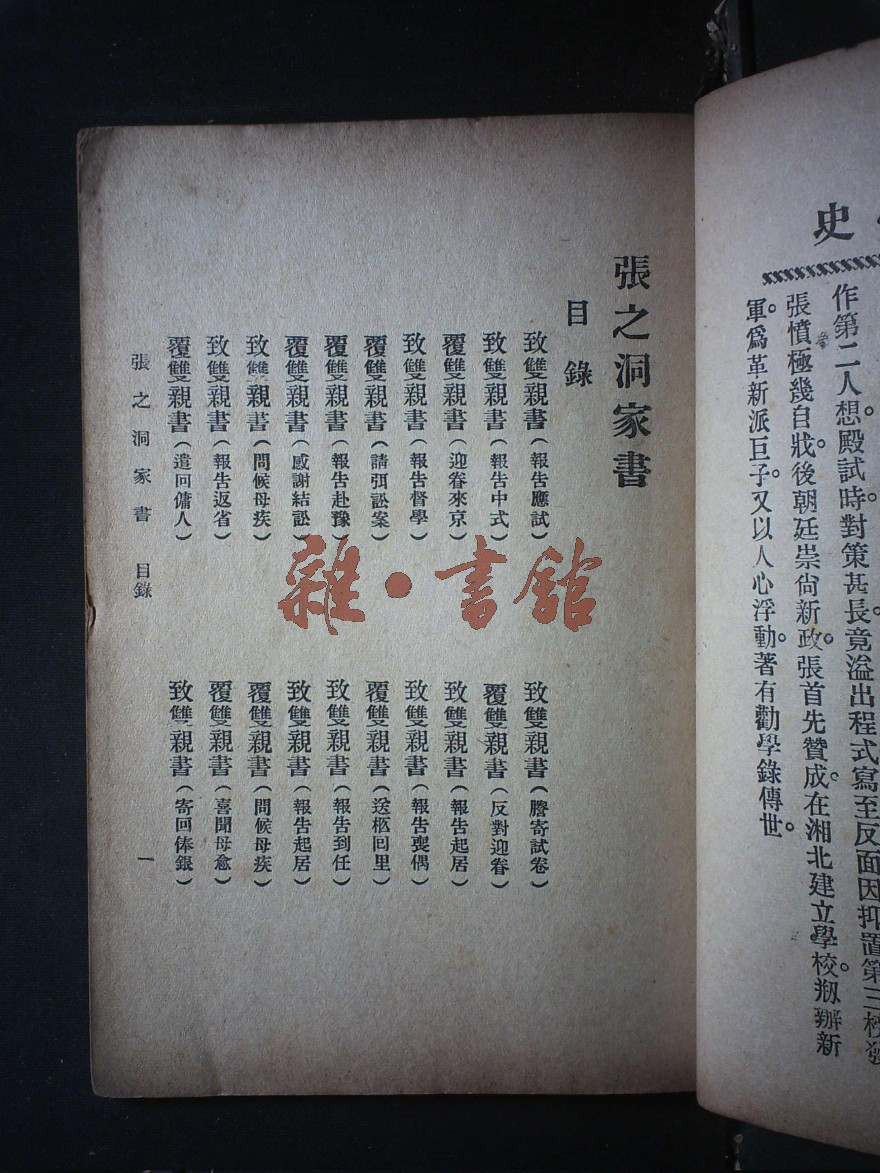 史
作第二人想。殿試時對策甚長。竟溢出程式寫至反面因抑置第三
張憤極幾自戕。後朝廷崇尙新政。張首先贊成。在湘北建立學校。剏辦新
軍。爲革新派巨子。又以人心浮動。著有勸學錄傳世。
張之洞家書
目錄
致雙親書(報告應試) 致雙親書(謄寄試卷)
致雙親書(報告中式) 覆雙親書(反對迎眷)
覆雙親書(迎眷來京) 致雙親書(報告起居)
致雙親書(報告督學) 致雙親書(報告喪偶)
覆雙親書(請弭訟案) 覆雙親書(送柩回里)
覆雙親書(報告赴豫) 致雙親書(報告到任)
覆雙親書(感謝結訟) 致雙親書(報告起居)
致雙親書(問候母疾) 覆雙親書(問候母疾)
致雙親書(報告返省) 覆雙親書(喜聞母愈)
覆雙親書(遣回傭人) 致雙親書(寄回俸銀)
張之洞家書 目錄 一
雜·書館